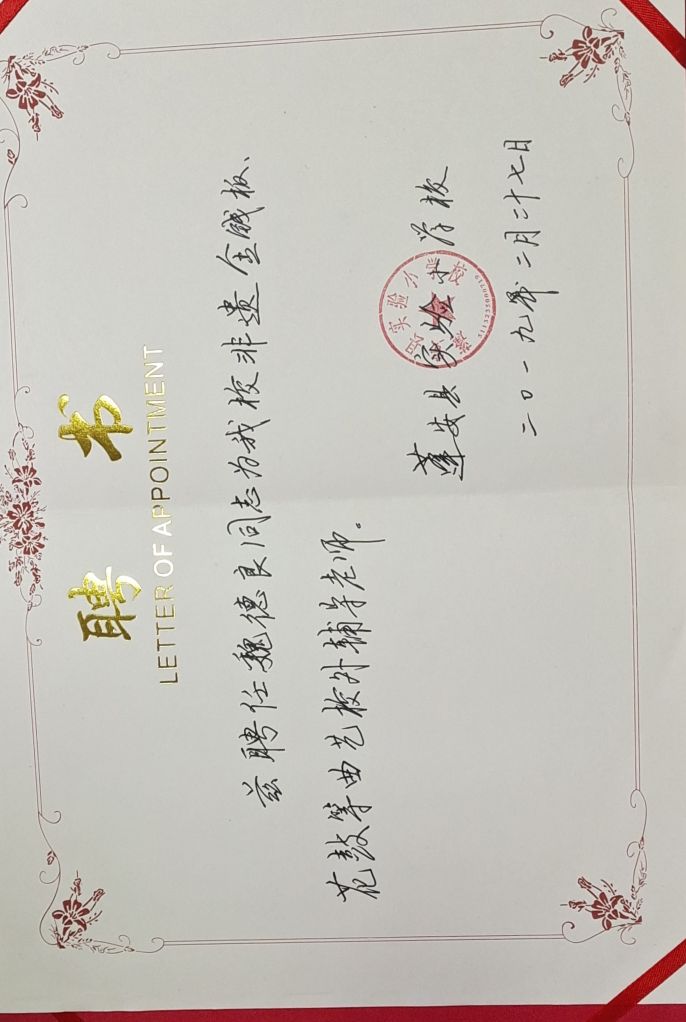 聘书
LETTER OF APPOINTMENT
兹聘任魏德良同志为我校非遗金钱板、
花鼓等曲艺校外辅导老师。
蓬安县实验小学校
二〇一九年二月二十七日